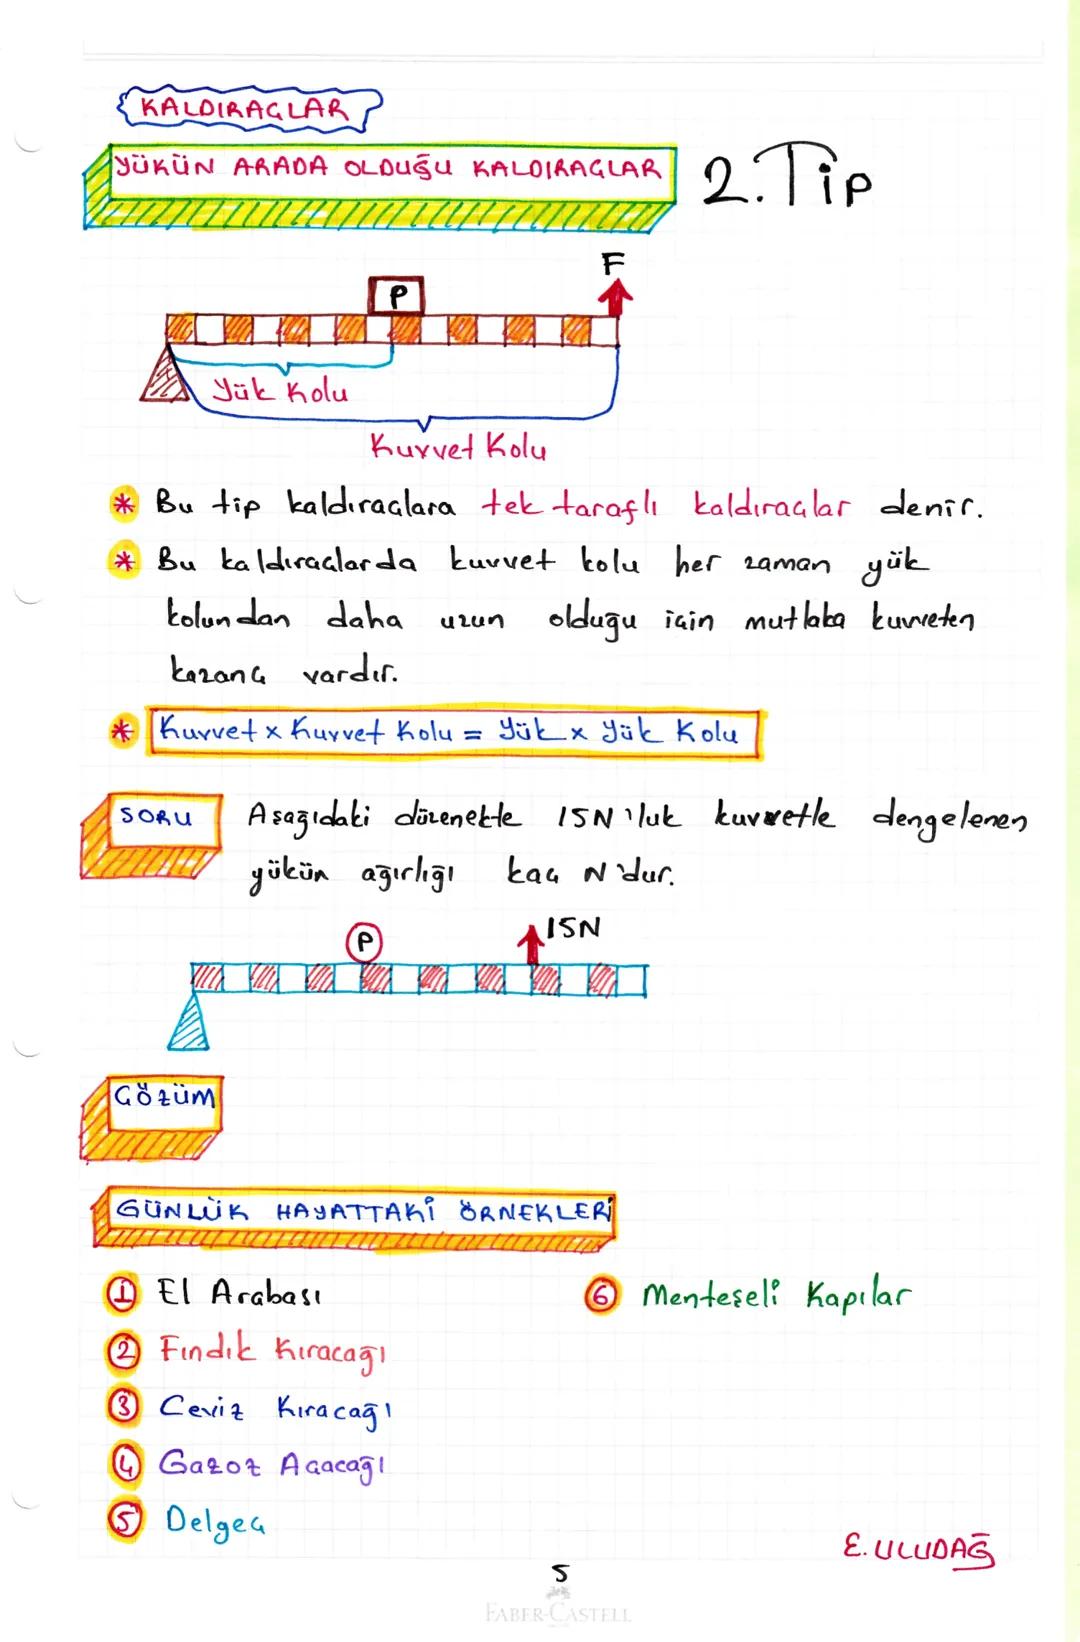 KALDIRAÇLAR
YÜKÜN ARADA OLDUĞU KALDIRAÇLAR
2. Tip
F
P
Yük Kolu
Kuvvet Kolu
* Bu tip kaldıraçlara tek taraflı kaldıraçlar denir.
* Bu kaldıraçlarda kuvvet kolu her zaman yük
kolundan daha uzun olduğu için mutlaka kuvveten
kazanç vardır.
* Kuvvet x Kuvvet Kolu = Yük x Yük Kolu
SORU
Aşağıdaki düzenekte 15N'luk kuvvetle dengelenen
yükün ağırlığı kaç N'dur.
P
15N
ÇÖZÜM
GÜNLÜK HAYATTAKİ ÖRNEKLERİ
1 El Arabası
2 Fındık Kıracağı
3 Ceviz Kıracağı
4 Gazoz Açacağı
5 Delgeç
6 Menteşeli Kapılar
E. ULUDAĞ
5
FABER-CASTELL